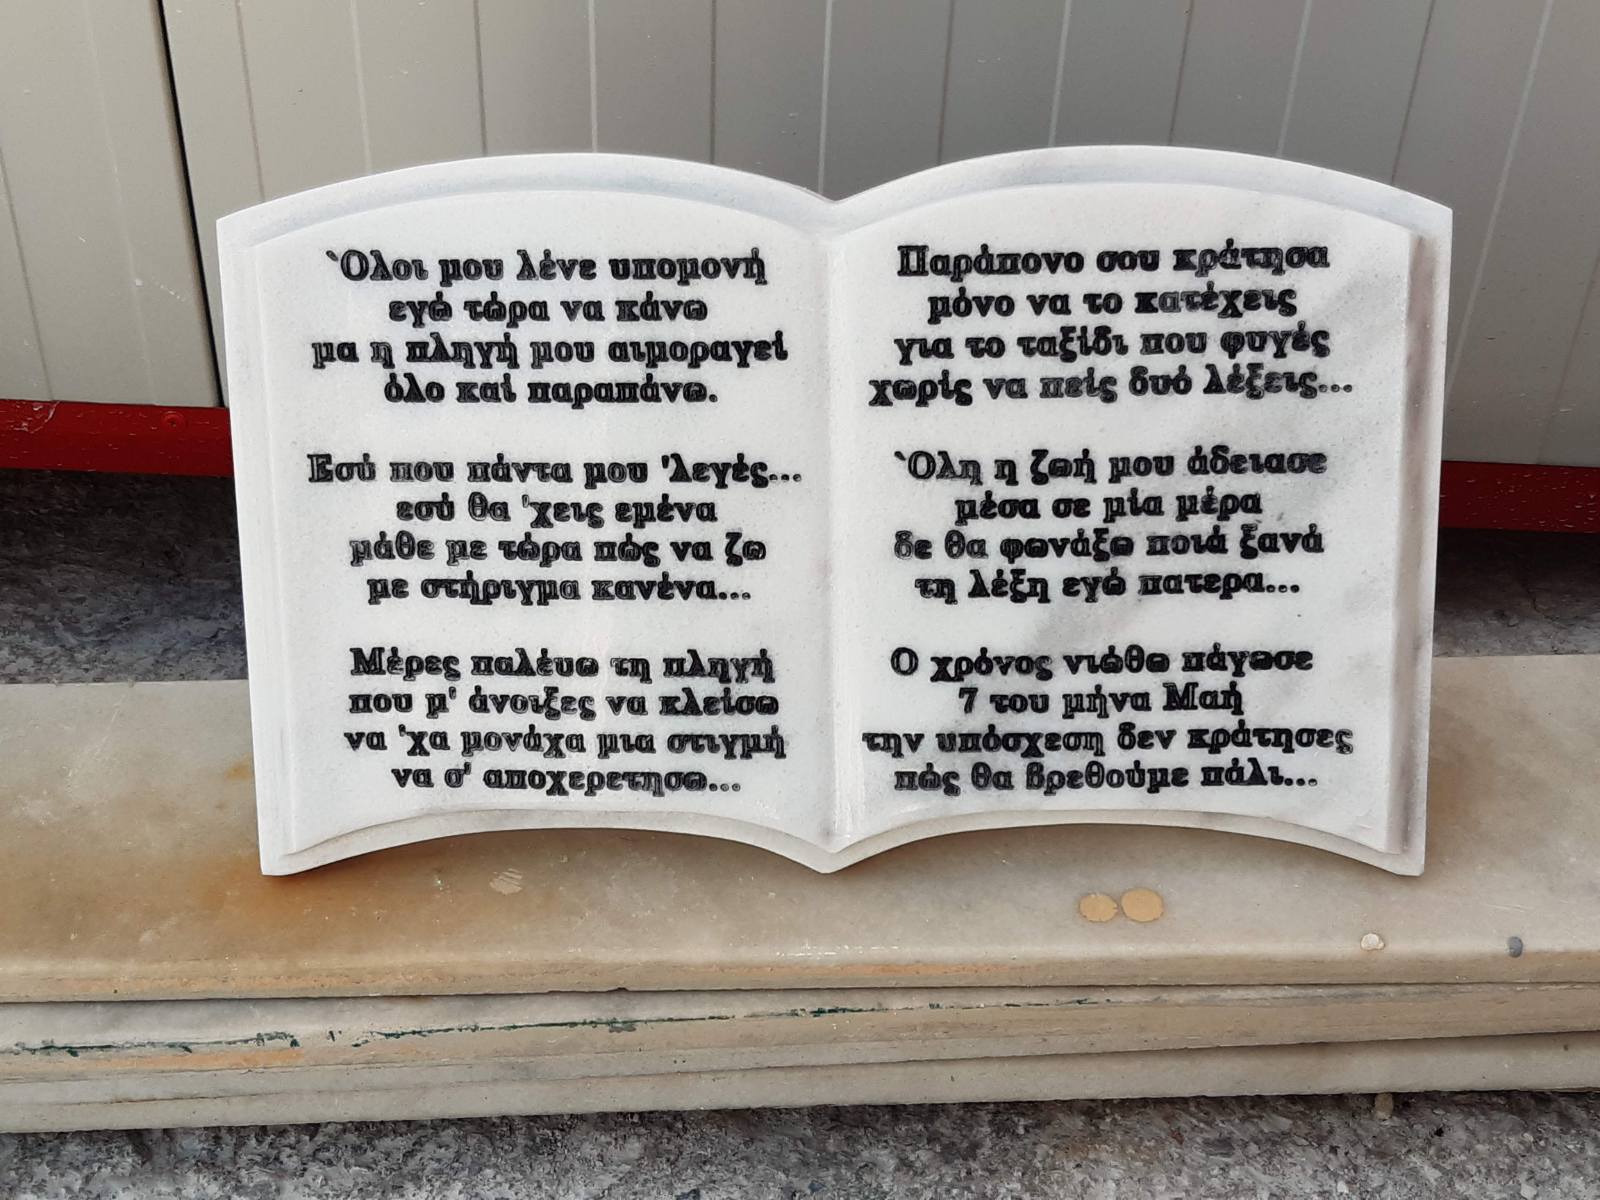 Όλοι μου λένε υπομονή
εγώ τώρα να κάνω
μα η πληγή μου αιμοραγεί
όλο καί παραπάνω.
Εσύ που πάντα μου 'λεγές...
εσύ θα 'χεις εμένα
μάθε με τώρα πώς να ζω
με στήριγμα κανένα...
Μέρες παλέυω τη πληγή
που μ' άνοιξες να κλείσω
να 'χα μονάχα μια στιγμή
να σ' αποχερετησω...
Παράπονο σου κράτησα
μόνο να το κατέχεις
για το ταξίδι που φυγές
χωρίς να πείς δυό λέξεις...
Όλη η ζωή μου άδειασε
μέσα σε μία μέρα
δε θα φωνάξω ποιά ξανά
τη λέξη εγώ πατερα...
Ο χρόνος νιώθω πάγωσε
7 του μήνα Μαή
την υπόσχεση δεν κράτησες
πώς θα βρεθούμε πάλι...